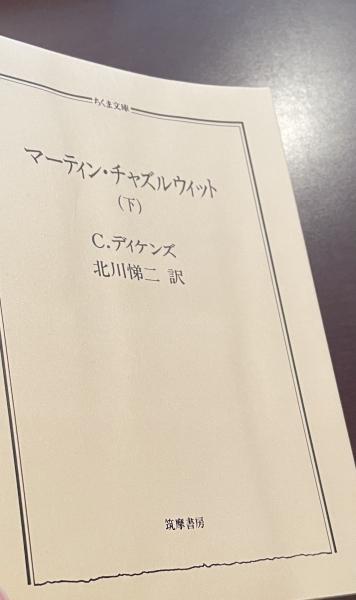 ちくま文庫
マーティン・チャズルウィット
(下)
C.ディケンズ
北川悌二 訳
筑摩書房